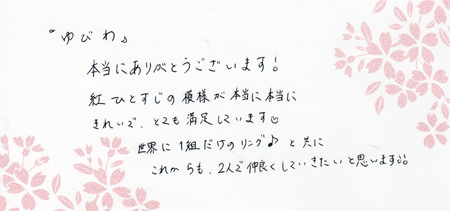 『ゆびわ』
本当にありがとうございます!
紅ひとすじの模様が本当に本当に
きれいで、とても満足しています♡
世界に1組だけのリング♪と共に
これからも、2人で仲良くしていきたいと思います